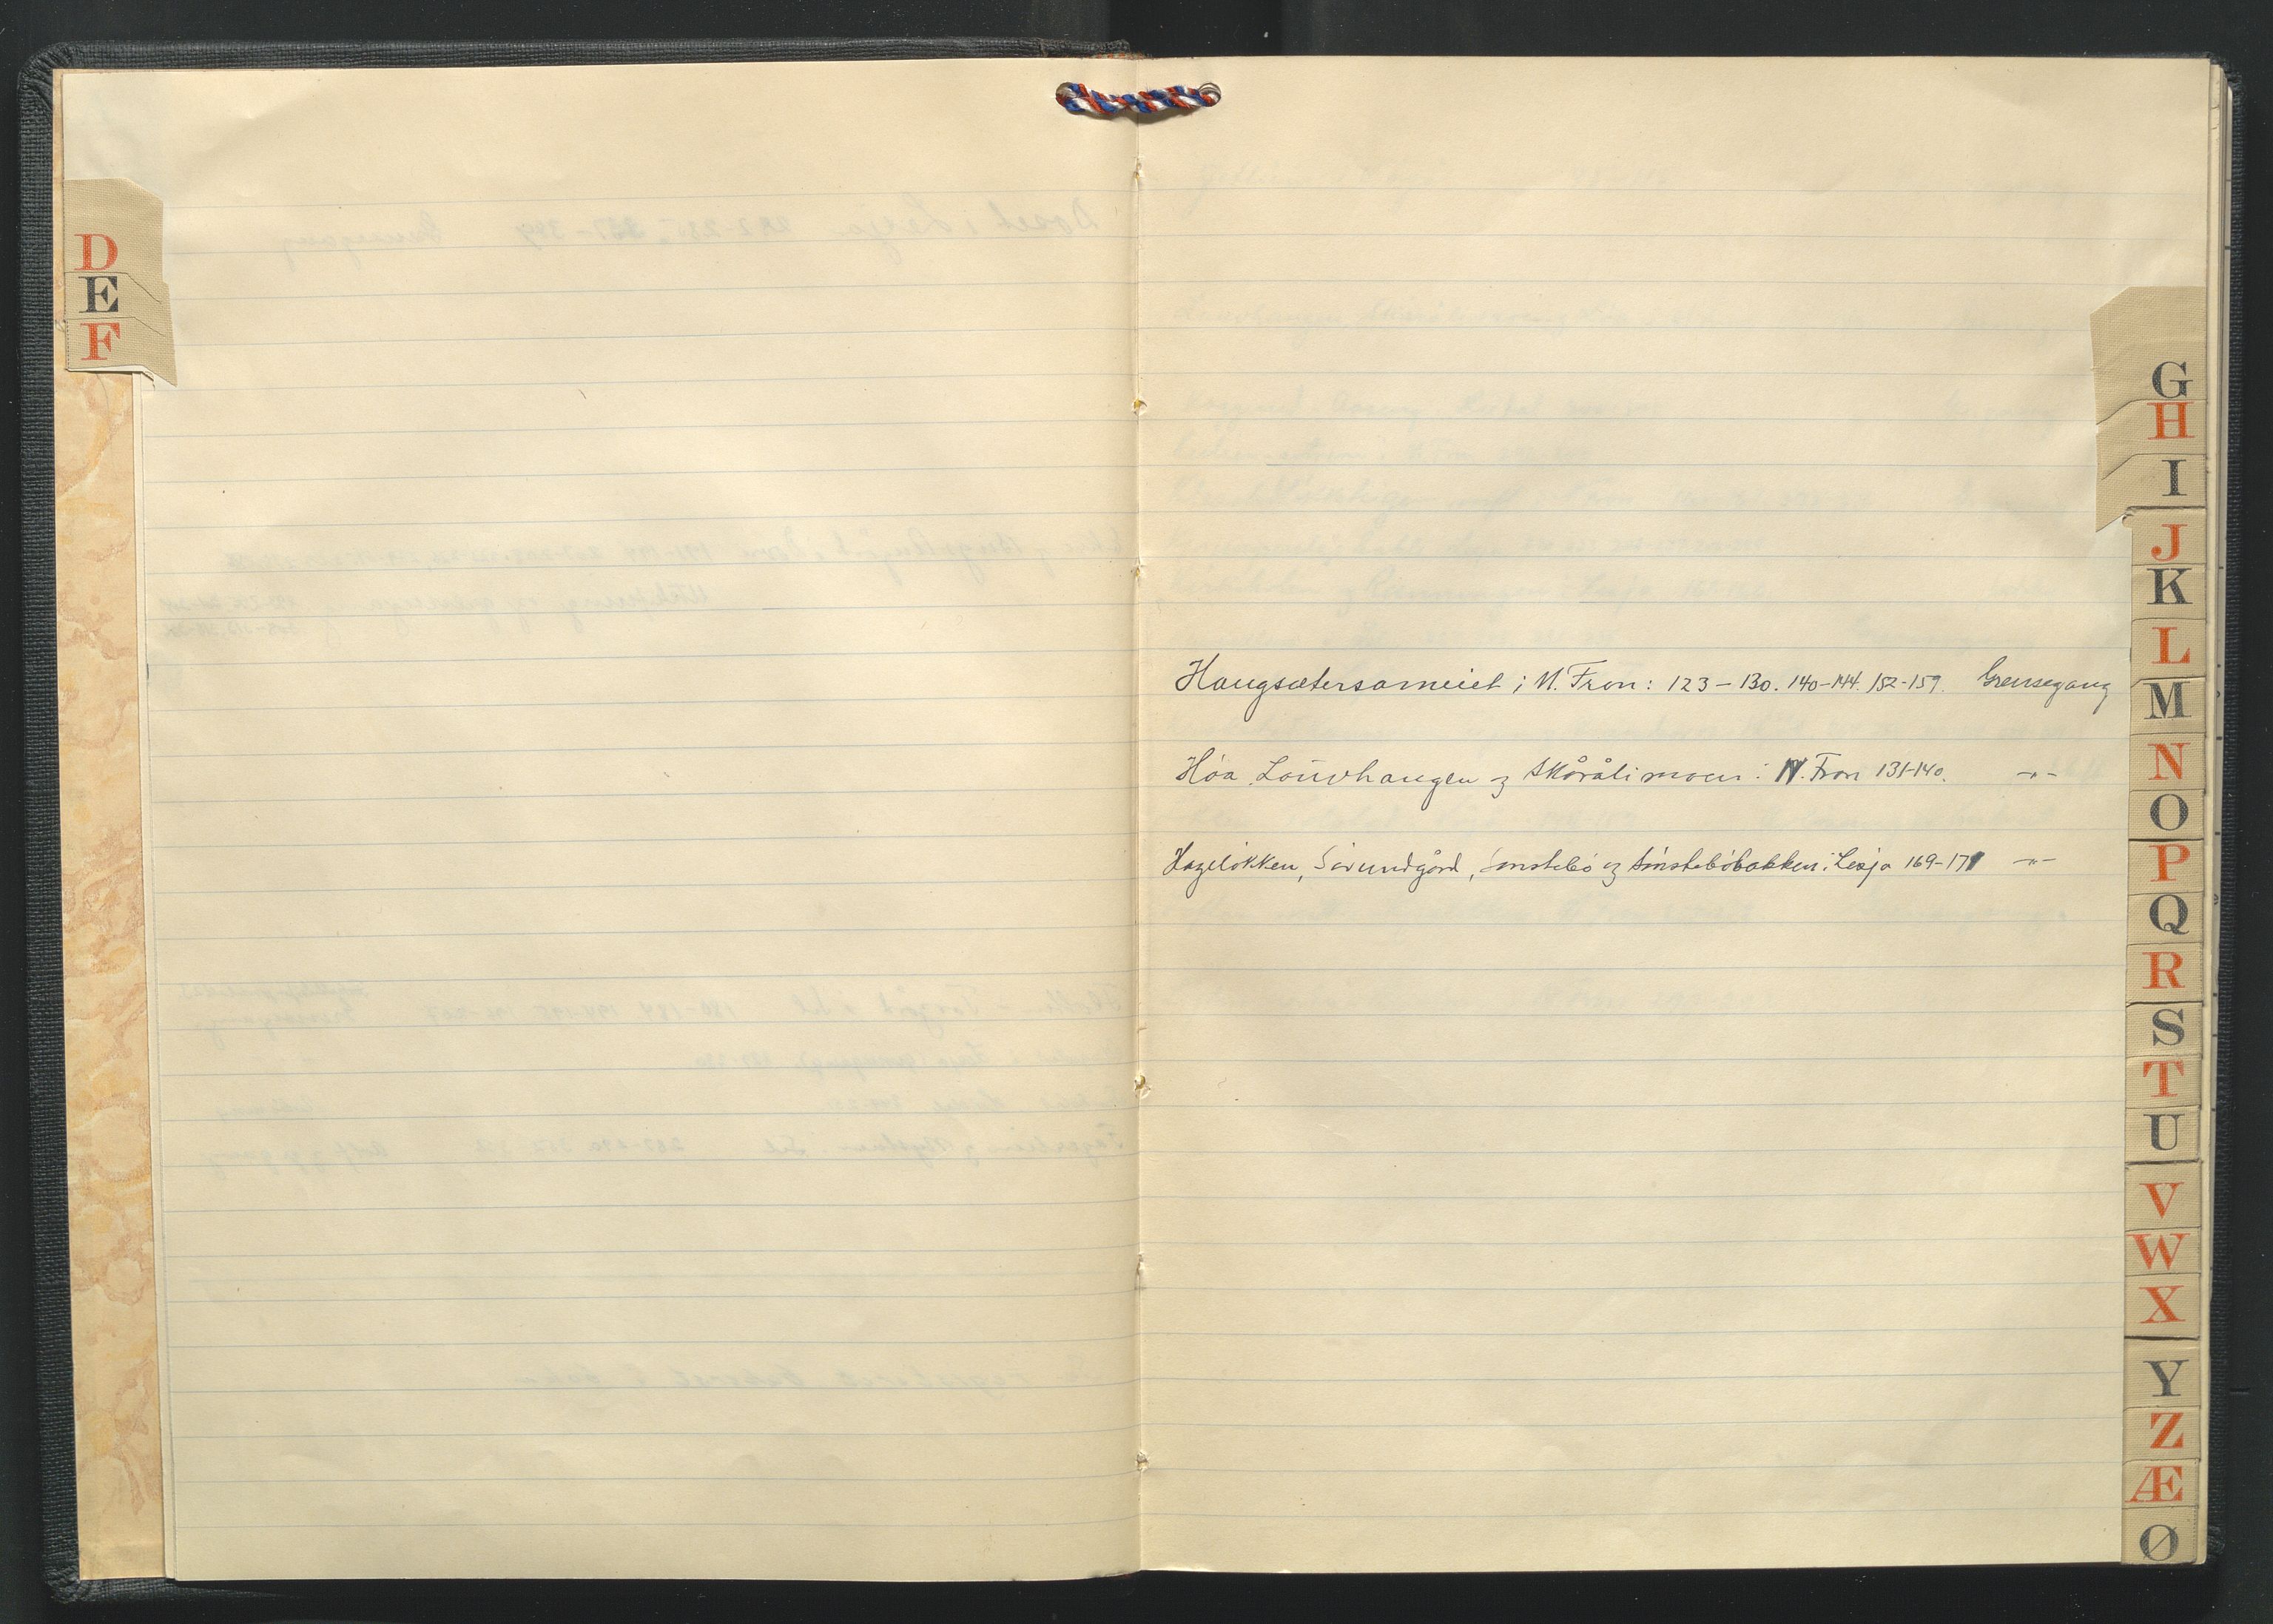 D
E
F
Haugsætersameiet i N. Fron: 123-130. 140-144. 152-159. Grensegang
Høa, Lauvhaugen og Skårålimoen i N. Fron 131-140. -"-
Hageløkken, Sørundgård, Sønstebø og Sønstebøbakken i Lesja 169-171 -"-
G
H
I
J
K
L
M
N
O
P
Q
R
S
T
U
V
W
X
Y
Z
Æ
Ø